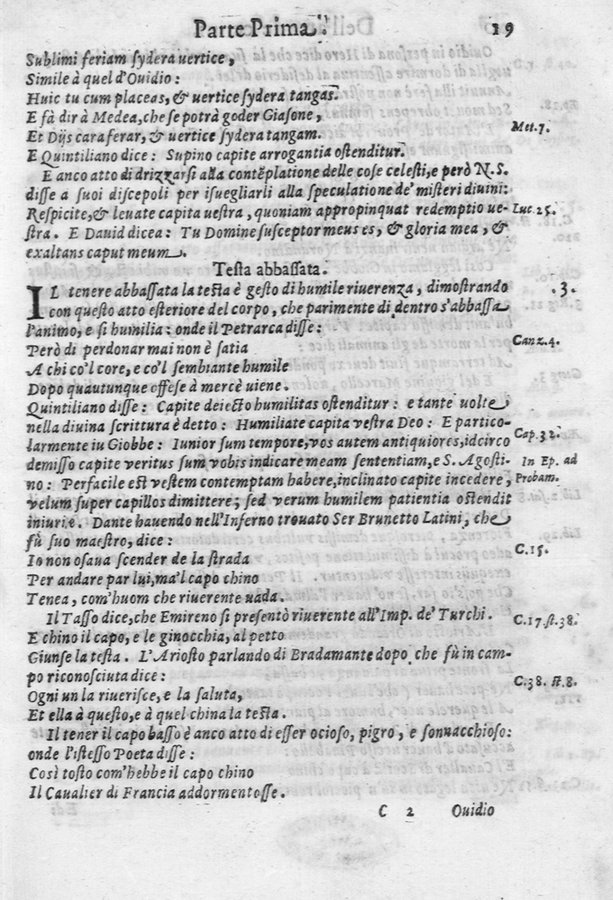 Parte Prima. 19
Sublimi feriam sydera vertice,
Simile à quel d'Ouidio:
Huic tu cum placeas, & vertice sydera tangas.
E fà dir à Medea, che se potrà goder Giasone,
Et Dijs cara ferar, & vertice sydera tangam. Met. 7.
E Quintiliano dice: Supino capite arrogantia ostenditur.
E anco atto di drizzarsi alla contẽplatione delle cose celesti, e però N. S.
disse a suoi discepoli per isuegliarli alla speculatione de' misteri diuini:
Respicite, & leuate capita uestra, quoniam appropinquat redemptio ue- Luc. 25.
stra. E Dauid dicea: Tu Domine susceptor meus es, & gloria mea, &
exaltans caput meum.
Testa abbassata.
IL tenere abbassata la testa è gesto di humile riuerenza, dimostrando .3.
con questo atto esteriore del corpo, che parimente di dentro s'abbassa
l'animo, e si humilia: onde il Petrarca disse:
Però di perdonar mai non è satia Canz. 4.
A chi co'l core, e co'l sembiante humile
Dopo quautunque offese à mercè uiene.
Quintiliano disse: Capite deiecto humilitas ostenditur: e tante uolte
nella diuina scrittura è detto: Humiliate capita vestra Deo: E partico-
larmente iu Giobbe: Iunior sum tempore, vos autem antiquiores, idcirco Cap. 32.
demisso capite veritus sum vobis indicare meam sententiam, e S. Agosti- In Ep. ad
no: Perfacile est vestem contemptam habere, inclinato capite incedere, Probam.
velum super capillos dimittere; sed verum humilem patientia ostendit
iniuriæ. Dante hauendo nell'Inferno trouato Ser Brunetto Latini, che
fù suo maestro, dice:
Io non osaua scender de la strada C. 15.
Per andare par lui, ma'l capo chino
Tenea, com'huom che riuerente uada.
Il Tasso dice, che Emireno si presentò riuerente all'Imp. de' Turchi. C. 17. st. 38.
E chino il capo, e le ginocchia, al petto
Giunse la testa. L'Ariosto parlando di Bradamante dopo che fù in cam-
po riconosciuta dice: C. 38. st. 8.
Ogni un la riuerisce, e la saluta,
Et ella à questo, e à quel china la testa.
Il tener il capo basso è anco atto di esser ocioso, pigro, e sonnacchioso:
onde l'istesso Poeta disse:
Così tosto com'hebbe il capo chino
Il Caualier di Francia addormentosse.
C 2 Ouidio